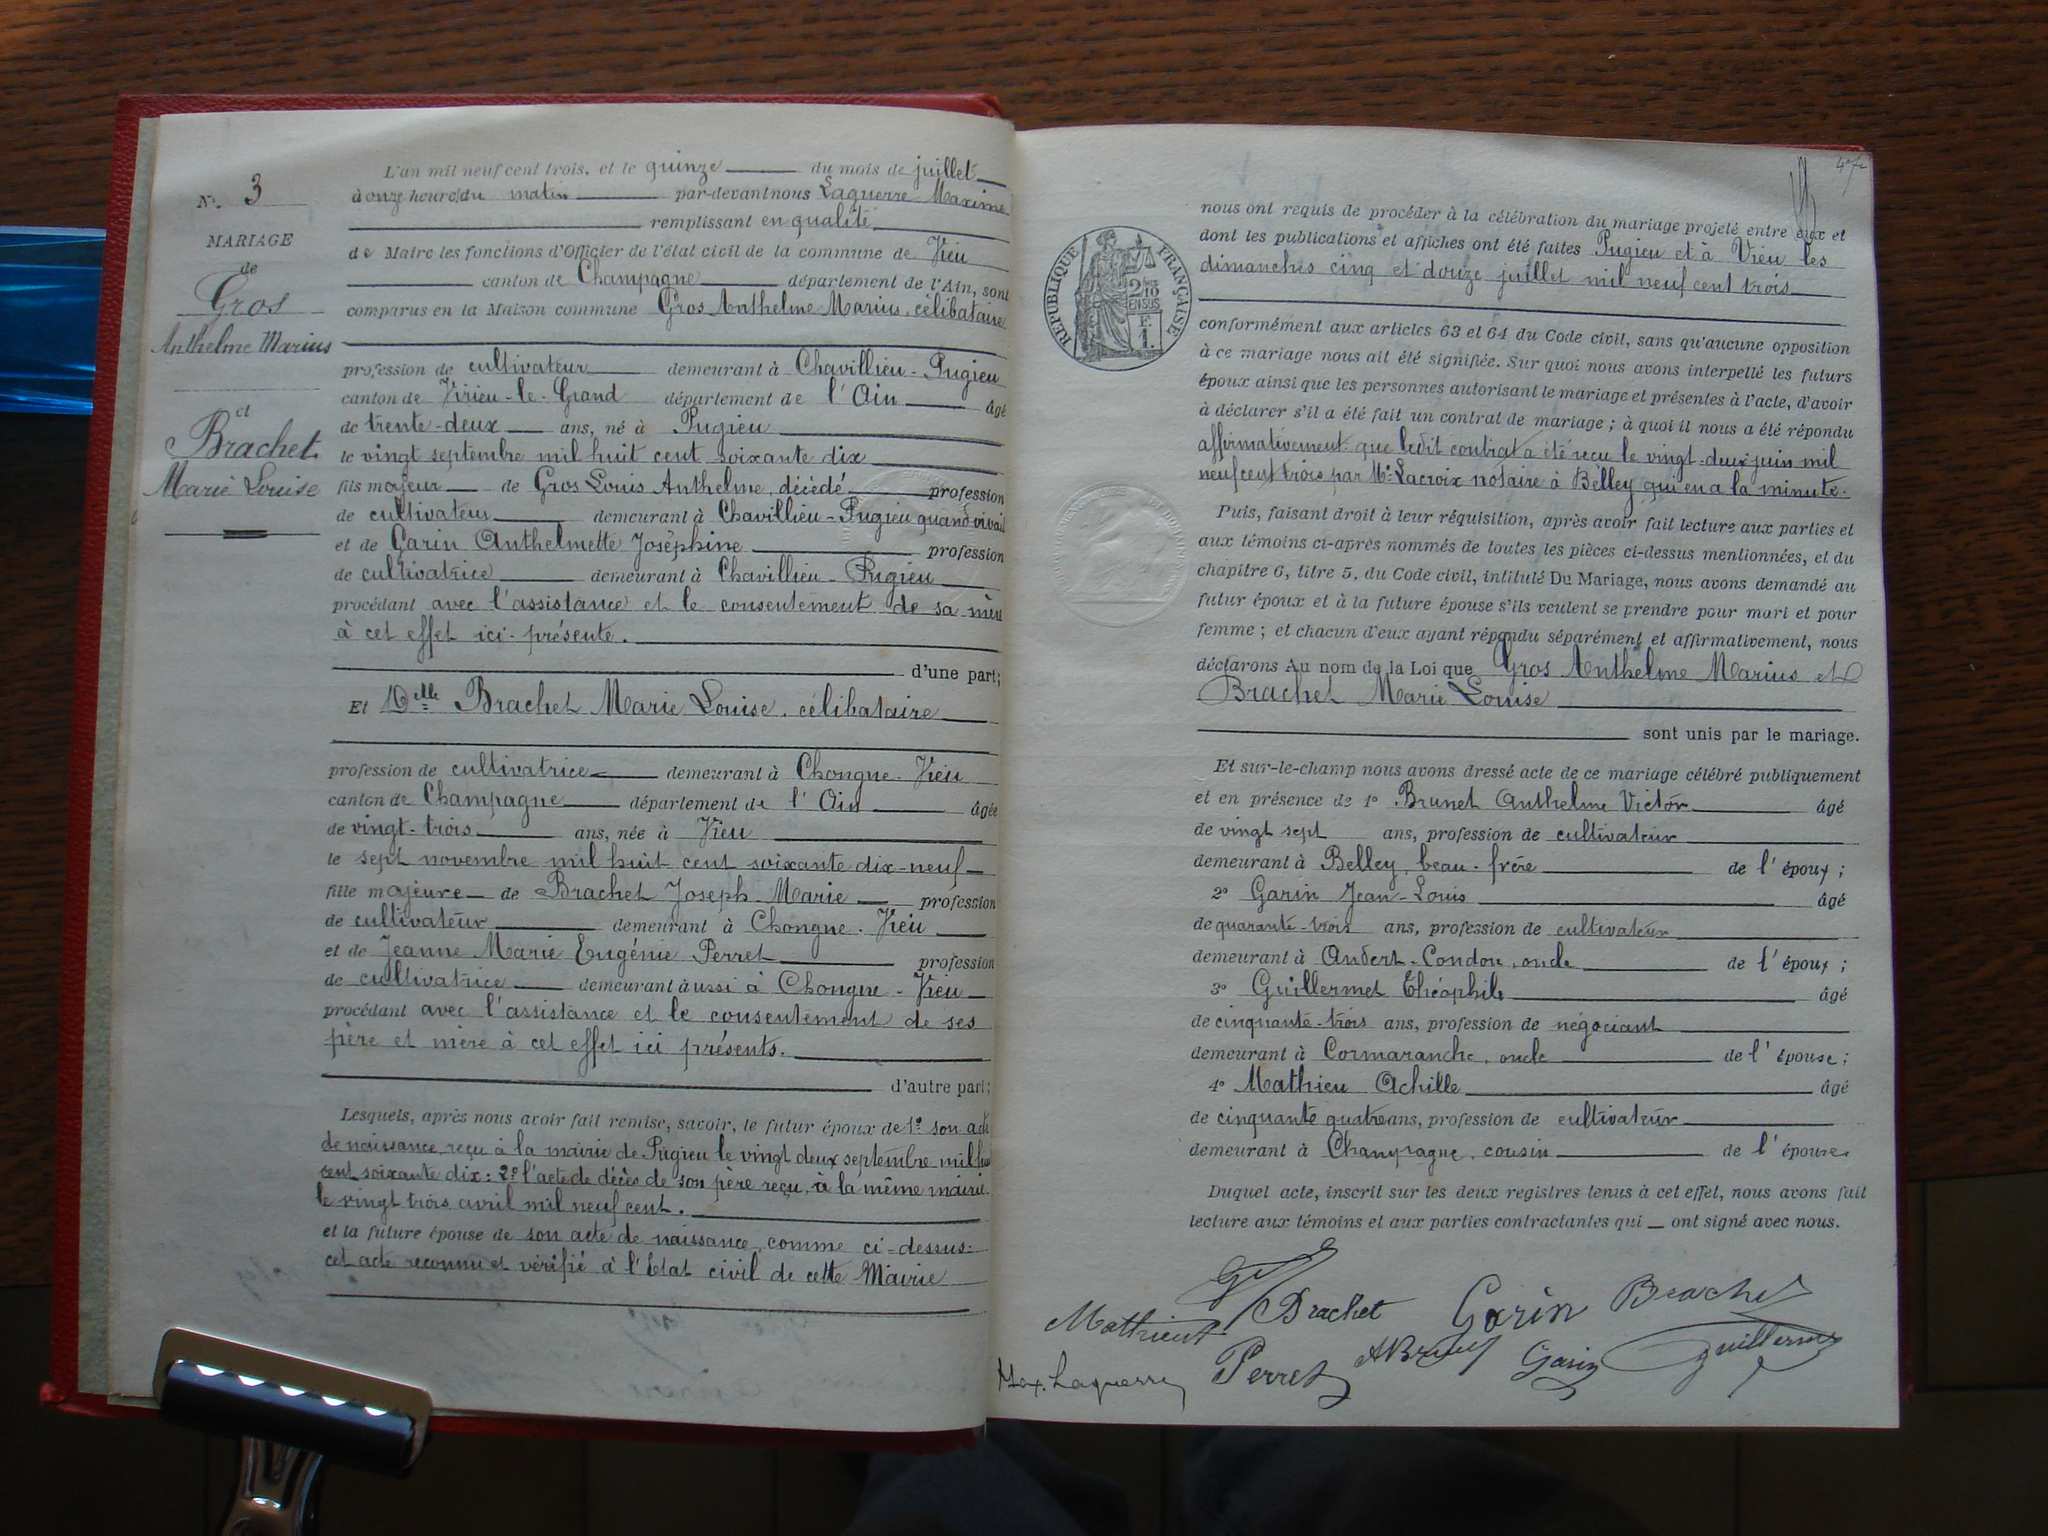 N°. 3
MARIAGE
de
Gros
Anthelme Marius
et
Brachet
Marie Louise
L'an mil neuf cent trois, et le quinze du mois de juillet
à onze heures du matin par-devant nous Laguerre Maxime
remplissant en qualité
de Maire les fonctions d'Officier de l'état civil de la commune de Vieu
canton de Champagne département de l'Ain, sont
comparus en la Maison commune Gros Anthelme Marius, célibataire
profession de cultivateur demeurant à Chavillieu-Pugieu
canton de Virieu-le-Grand département de l'Ain âgé
de trente-deux ans, né à Pugieu
le vingt septembre mil huit cent soixante dix
fils majeur de Gros Louis Anthelme, décédé profession
de cultivateur demeurant à Chavillieu-Pugieu quand vivait
et de Garin Anthelmette Joséphine profession
de cultivatrice demeurant à Chavillieu-Pugieu
procédant avec l'assistance et le consentement de sa mère
à cet effet ici-présente.
d'une part;
Et Delle Brachet Marie Louise, célibataire
profession de cultivatrice demeurant à Chongne-Vieu
canton de Champagne département de l'Ain âgée
de vingt-trois ans, née à Vieu
le sept novembre mil huit cent soixante dix-neuf
fille majeure de Brachet Joseph Marie profession
de cultivateur demeurant à Chongne-Vieu
et de Jeanne Marie Eugénie Perret profession
de cultivatrice demeurant aussi à Chongne-Vieu
procédant avec l'assistance et le consentement de ses
père et mère à cet effet ici présents.
d'autre part;
Lesquels, après nous avoir fait remise, savoir, le futur époux de 1° son acte
de naissance reçu à la mairie de Pugieu le vingt deux septembre mil huit
cent soixante dix: 2° l'acte de décès de son père reçu à la même mairie
le vingt trois avril mil neuf cent.
et la future épouse de son acte de naissance, comme ci-dessus:
cet acte reconnu et vérifié à l'Etat civil de cette Mairie
RÉPUBLIQUE FRANÇAISE
2/10 EN SUS
F.
1.
nous ont requis de procéder à la célébration du mariage projeté entre eux et
dont les publications et affiches ont été faites Pugieu et à Vieu les
dimanches cinq et douze juillet mil neuf cent trois
conformément aux articles 63 et 64 du Code civil, sans qu'aucune opposition
à ce mariage nous ait été signifiée. Sur quoi nous avons interpellé les futurs
époux ainsi que les personnes autorisant le mariage et présentes à l'acte, d'avoir
à déclarer s'il a été fait un contrat de mariage; à quoi il nous a été répondu
affirmativement que ledit contrat a été reçu le vingt-deux juin mil
neuf cent trois par Me Lacroix notaire à Belley qui en a la minute.
Puis, faisant droit à leur réquisition, après avoir fait lecture aux parties et
aux témoins ci-après nommés de toutes les pièces ci-dessus mentionnées, et du
chapitre 6, titre 5, du Code civil, intitulé Du Mariage, nous avons demandé au
futur époux et à la future épouse s'ils veulent se prendre pour mari et pour
femme; et chacun d'eux ayant répondu séparément et affirmativement, nous
déclarons Au nom de la Loi que Gros Anthelme Marius et
Brachet Marie Louise
sont unis par le mariage.
Et sur-le-champ nous avons dressé acte de ce mariage célébré publiquement
et en présence de 1° Brunet Anthelme Victor âgé
de vingt sept ans, profession de cultivateur
demeurant à Belley, beau-frère de l'époux;
2° Garin Jean-Louis âgé
de quarante-trois ans, profession de cultivateur
demeurant à Andert-Condon, oncle de l'époux;
3° Guillermet Théophile âgé
de cinquante-trois ans, profession de négociant
demeurant à Cormaranche, oncle de l'épouse;
4° Mathieu Achille âgé
de cinquante quatre ans, profession de cultivateur
demeurant à Champagne, cousin de l'épouse
Duquel acte, inscrit sur les deux registres tenus à cet effet, nous avons fait
lecture aux témoins et aux parties contractantes qui ont signé avec nous.
Mathieu Brachet Garin Brachet
Max. Laguerre Perret ABrunet Garin Guillermet